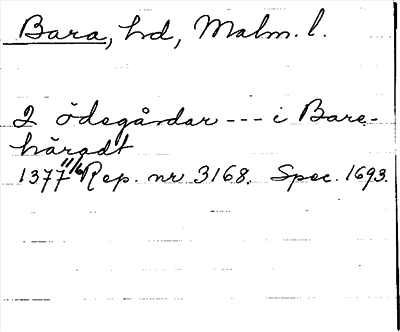 Bara, hd, Malm. l.
2 ödegårdar --- i Bare-
häradt
1377 11/6 Rep. nr 3168. Spec. 1693.